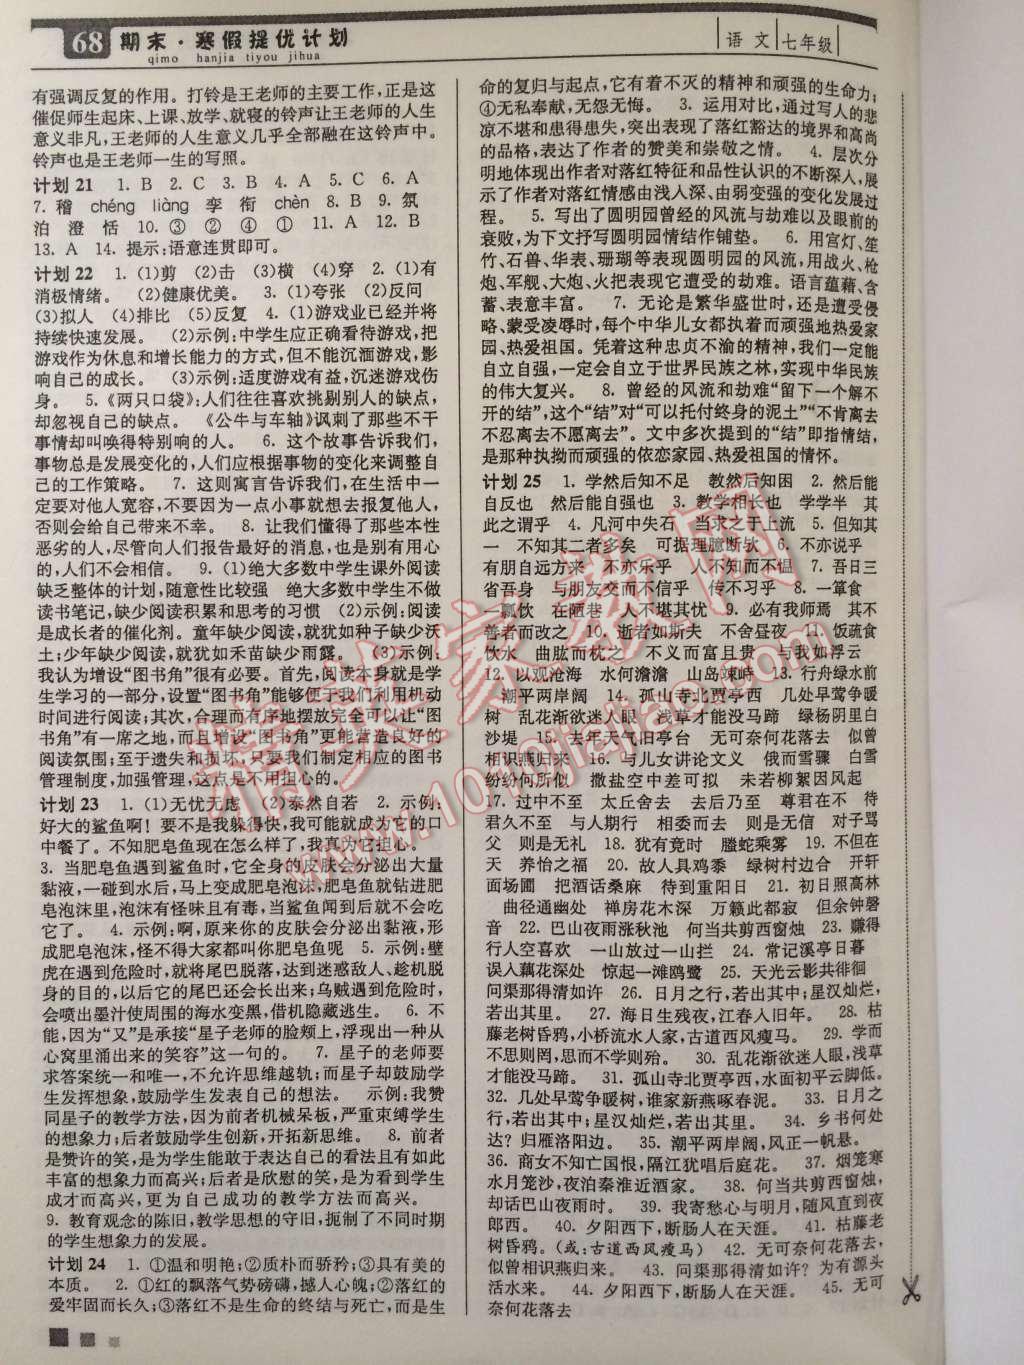 68 期末·寒假提优计划
qimo hanjia tiyou jihua
语文 七年级
有强调反复的作用。打铃是王老师的主要工作,正是这
催促师生起床、上课、放学、就寝的铃声让王老师的人生
意义非凡,王老师的人生意义几乎全部融在这铃声中。
铃声也是王老师一生的写照。
计划 21 1. B 2. C 3. B 4. A 5. C 6. A
7. 稽 chéng liàng 李 衔 chèn 8. B 9. 氛
泊 澄 恬 10. ③ ② ④ ① 11. A 12. B
13. A 14. 提示:语意连贯即可。
计划 22 1. (1)剪 (2)击 (3)横 (4)穿 2. (1)有
消极情绪。 (2)健康优美。 3. (1)夸张 (2)反问
(3)拟人 (4)排比 (5)反复 4. (1)游戏业已经并将
持续快速发展。 (2)示例:中学生应正确看待游戏,把
游戏作为休息和增长能力的方式,但不能沉湎游戏,影
响自己的成长。 (3)示例:适度游戏有益,沉迷游戏伤
身。 5.《两只口袋》:人们往往喜欢挑剔别人的缺点,
却忽视自己的缺点。 《公牛与车轴》讽刺了那些不干
事情却叫唤得特别响的人。 6. 这个故事告诉我们,
事物总是发展变化的,人们应根据事物的变化来调整自
己的工作策略。 7. 这则寓言告诉我们,在生活中一
定要对他人宽容,不要因为一点小事就想去报复他人,
否则会给自己带来不幸。 8. 让我们懂得了那些本性
恶劣的人,尽管向人们报告最好的消息,也是别有用心
的,人们不会相信。 9. (1)绝大多数中学生课外阅读
缺乏整体的计划,随意性比较强 绝大多数中学生不做
读书笔记,缺少阅读积累和思考的习惯 (2)示例:阅读
是成长者的催化剂。童年缺少阅读,就犹如种子缺少沃
土;少年缺少阅读,就犹如禾苗缺少雨露。 (3)示例:
我认为增设“图书角”很有必要。首先,阅读本身就是学
生学习的一部分,设置“图书角”能够便于我们利用机动
时间进行阅读;其次,合理而有序地摆放完全可以让“图
书角”有一席之地,而且增设“图书角”更能营造良好的
阅读氛围;至于遗失和损坏,只要我们制定相应的图书
管理制度,加强管理,这点是不用担心的。
计划 23 1. (1)无忧无虑 (2)泰然自若 2. 示例:
好大的鲨鱼啊!要不是我躲得快,我可能就成为它的口
中餐了。不知肥皂鱼现在怎么样了,我真为它担心。
3. 当肥皂鱼遇到鲨鱼时,它全身的皮肤会分泌出大量
黏液,一碰到水后,马上变成肥皂泡沫,肥皂鱼就钻进肥
皂泡沫里,泡沫有怪味且有毒,当鲨鱼闻到后就不会吃
它了。 4. 示例:啊,原来你的皮肤会分泌出黏液,形
成肥皂泡沫,怪不得大家都叫你肥皂鱼呢 5. 示例:壁
虎在遇到危险时,就将尾巴脱落,达到迷惑敌人、趁机脱
身的目的,以后它的尾巴还会长出来;乌贼遇到危险时,
会喷出墨汁使周围的海水变黑,借机隐藏逃生。 6. 不
能,因为“又”是承接“星子老师的脸颊上,浮现出一种从
心窝里涌出来的笑容”这一句的。 7. 星子的老师要
求答案统一和唯一,不允许思维越轨;而星子却鼓励学
生发挥想象,鼓励学生发表自己的想法。 示例:我赞
同星子的教学方法,因为前者机械呆板,严重束缚学生
的想象力;后者鼓励学生创新,开拓新思维。 8. 前者
是赞许的笑,是为学生能敢于表达自己的看法且有如此
丰富的想象力而高兴;后者是欣慰的笑,是为看到学生
成才而高兴,更为自己成功的教学方法而高兴。
9. 教育观念的陈旧,教学思想的守旧,扼制了不同时期
的学生想象力的发展。
计划 24 1. ①温和明艳;②质朴而骄矜;③具有美的
本质。 2. ①红的飘落气势磅礴,撼人心魄;②落红的
爱牢固而长久;③落红不是生命的终结与死亡,而是生
命的复归与起点,它有着不灭的精神和顽强的生命力;
④无私奉献,无怨无悔。 3. 运用对比,通过写人的悲
凉不堪和患得患失,突出表现了落红豁达的境界和高尚
的品格,表达了作者的赞美和崇敬之情。 4. 层次分
明地体现出作者对落红特征和品性认识的不断深入,展
示了作者对落红情感由浅入深、由弱变强的变化发展过
程。 5. 写出了圆明园曾经的风流与劫难以及眼前的
衰败,为下文抒写圆明园情结作铺垫。 6. 用宫灯、笙
竹、石兽、华表、珊瑚等表现圆明园的风流,用战火、枪
炮、军舰、大炮、火把表现它遭受的劫难。语言蕴藉、含
蓄、表意丰富。 7. 无论是繁华盛世时,还是遭受侵
略、蒙受凌辱时,每个中华儿女都执着而顽强地热爱家
园、热爱祖国。凭着这种忠贞不渝的精神,我们一定能
自立自强,一定会自立于世界民族之林,实现中华民族
的伟大复兴。 8. 曾经的风流和劫难“留下一个解不
开的结”,这个“结”对“可以托付终身的泥土”“不肯离去
不忍离去不愿离去”。文中多次提到的“结”即指情结,
是那种执拗而顽强的依恋家园、热爱祖国的情怀。
计划 25 1. 学然后知不足 教然后知困 2. 然后能
自反也 然后能自强也 3. 教学相长也 学学半 其
此之谓乎 4. 凡河中失石 当求之于上流 5. 但知其
一 不知其二者多矣 可据理臆断欤 6. 不亦说乎
有朋自远方来 不亦乐乎 人不知而不愠 7. 吾日三
省吾身 与朋友交而不信乎 传不习乎 8. 一箪食
一瓢饮 在陋巷 人不堪其忧 9. 必有我师焉 其不
善者而改之 10. 逝者如斯夫 不舍昼夜 11. 饭疏食
饮水 曲肱而枕之 不义而富且贵 与我如浮云
12. 以观沧海 水何澹澹 山岛竦峙 13. 行舟绿水前
潮平两岸阔 14. 孤山寺北贾亭西 几处早莺争暖
树 乱花渐欲迷人眼 浅草才能没马蹄 绿杨阴里白
沙堤 15. 去年天气旧亭台 无可奈何花落去 似曾
相识燕归来 16. 与儿女讲论文义 俄而雪骤 白雪
纷纷何所似 撒盐空中差可拟 未若柳絮因风起
17. 过中不至 太丘舍去 去后乃至 尊君在不 待
君久不至 与人期行 相委而去 则是无信 对子骂
父 则是无礼 18. 犹有竟时 螣蛇乘雾 19. 不但在
天 养怡之福 20. 故人具鸡黍 绿树村边合 开轩
面场圃 把酒话桑麻 待到重阳日 21. 初日照高林
曲径通幽处 禅房花木深 万籁此都寂 但余钟磬
音 22. 巴山夜雨涨秋池 何当共剪西窗烛 23. 赚得
行人空喜欢 一山放过一山拦 24. 常记溪亭日暮
误入藕花深处 惊起一滩鸥鹭 25. 天光云影共徘徊
问渠那得清如许 26. 日月之行,若出其中;星汉灿烂,
若出其里。 27. 海日生残夜,江春入旧年。 28. 枯
藤老树昏鸦,小桥流水人家,古道西风瘦马。 29. 学而
不思则罔,思而不学则殆。 30. 乱花渐欲迷人眼,浅草
才能没马蹄。 31. 孤山寺北贾亭西,水面初平云脚低。
32. 几处早莺争暖树,谁家新燕啄春泥。 33. 日月之
行,若出其中;星汉灿烂,若出其里。 34. 乡书何处
达?归雁洛阳边。 35. 潮平两岸阔,风正一帆悬。
36. 商女不知亡国恨,隔江犹唱后庭花。 37. 烟笼寒
水月笼沙,夜泊秦淮近酒家。 38. 何当共剪西窗烛,
却话巴山夜雨时。 39. 我寄愁心与明月,随风直到夜
郎西。 40. 夕阳西下,断肠人在天涯。 41. 枯藤老
树昏鸦。(或:古道西风瘦马) 42. 无可奈何花落去,
似曾相识燕归来。 43. 问渠那得清如许?为有源头
活水来。 44. 夕阳西下,断肠人在天涯。 45. 无可
奈何花落去
精英家教网
www.1010jiajiao.com